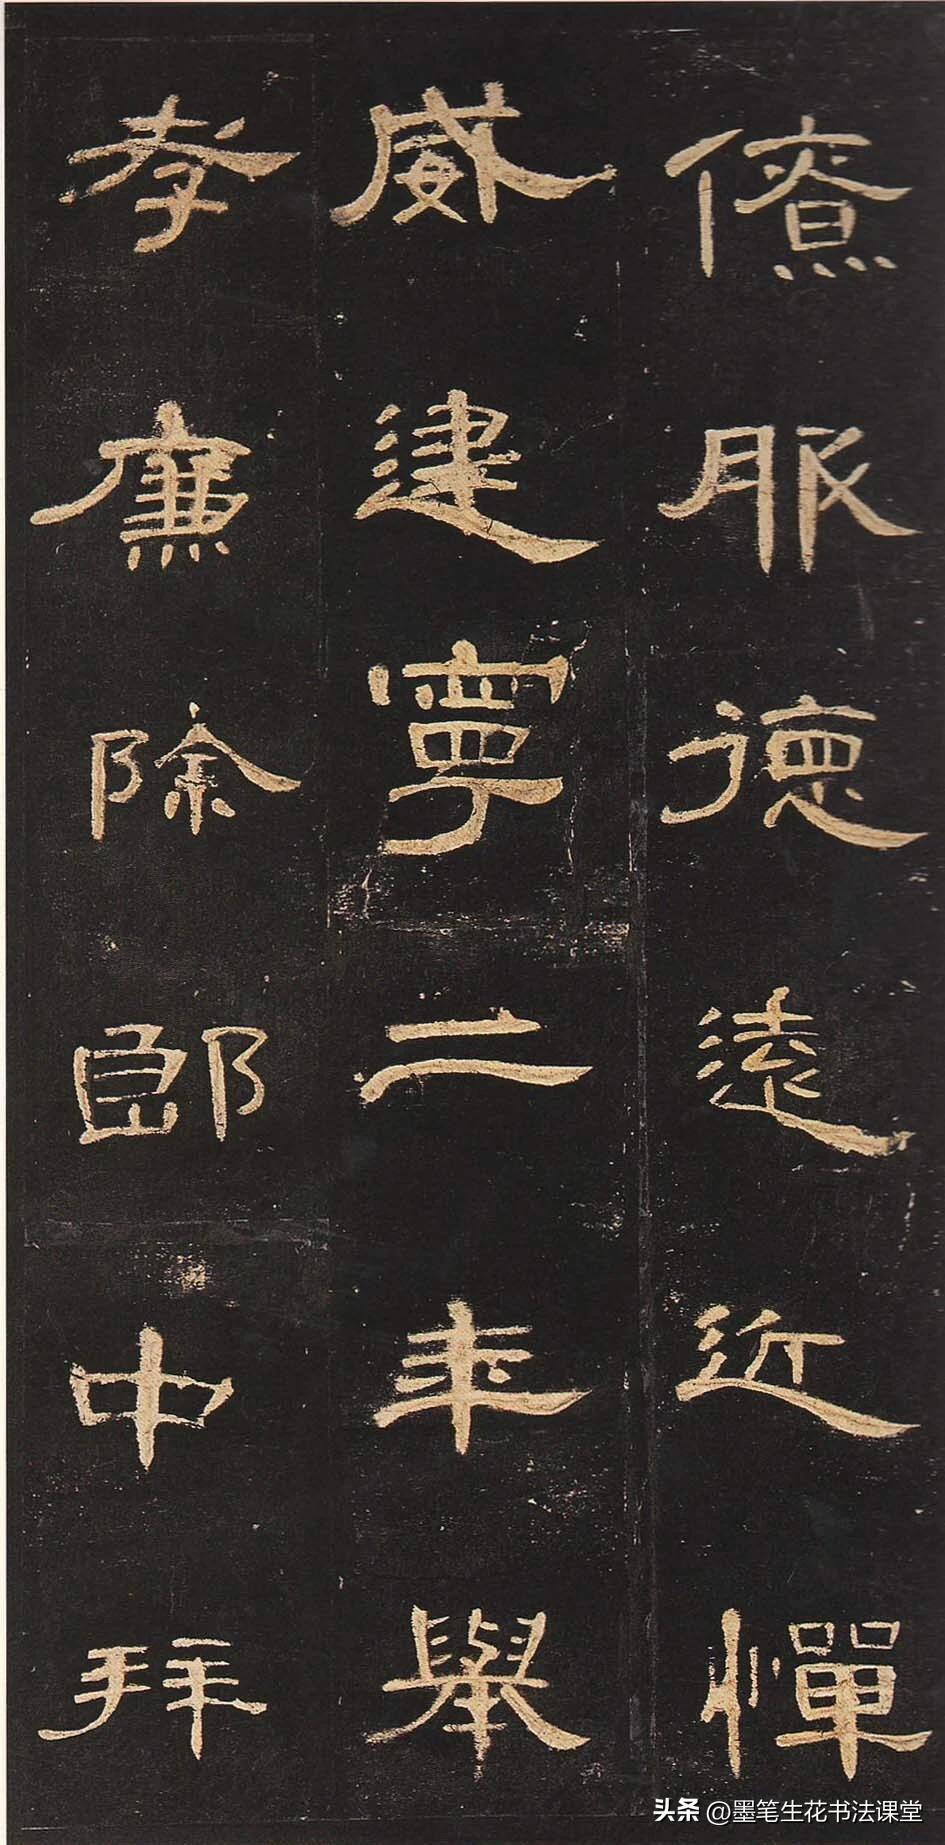 僚服德遠近憚
威建寧二年舉
孝廉除郎中拜
头条 @墨笔生花书法课堂